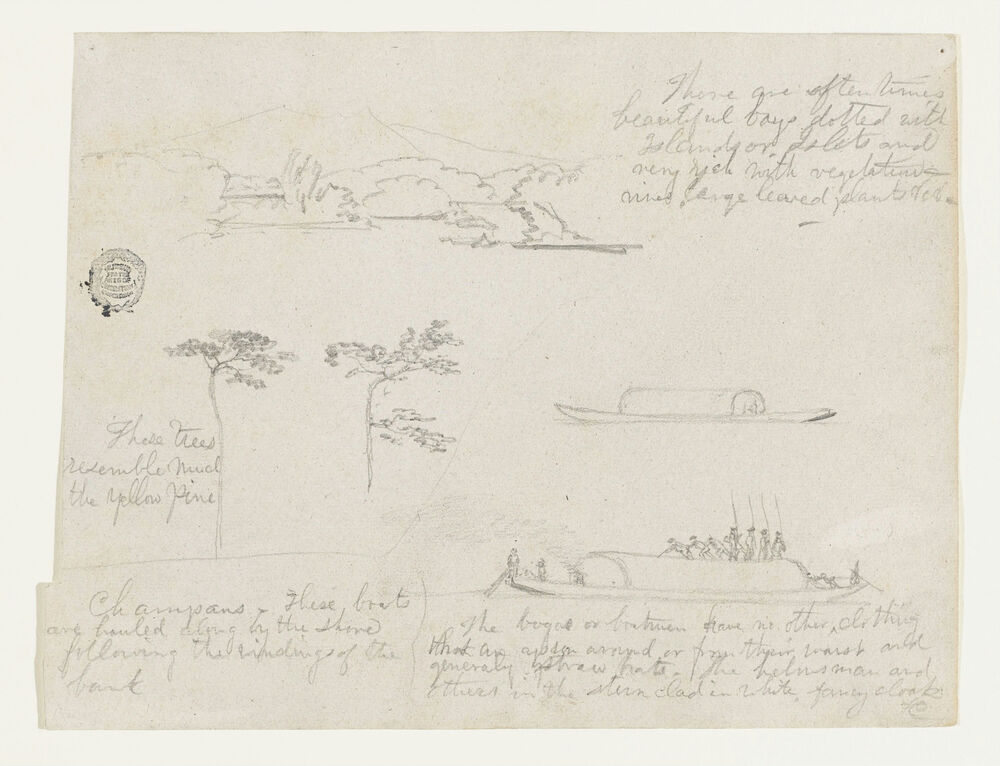 There are often times
beautiful bays dotted with
Islands or Islets and
very rich with vegetation
vines large leaved plants
These trees
resemble much
the yellow Pine
Champans - These boats
are hauled along by the shore
following the windings of the
bank
The bogas or boatmen have no other clothing
than an apron around or from their waist and
generaly straw hats. The helmsman and
others in the stern clad in white, fancy cloaks